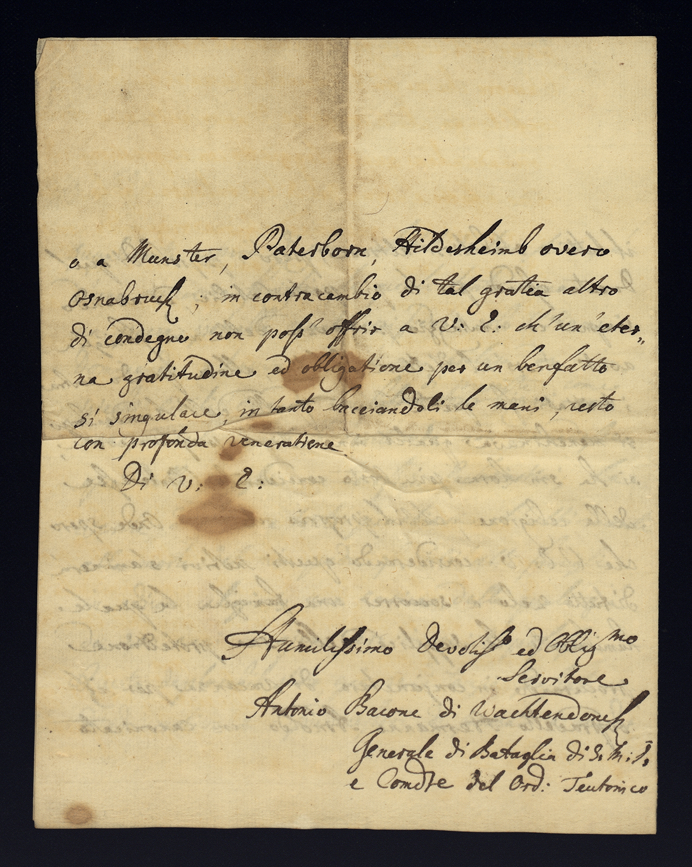 o a Munster, Paterborn, Hildesheimb overo
Osnabruck, in contracambio di tal gratia altro
di condegno non poss' offrir a V: E: ch'un' eter„
na gratitudine ed obligatione per un benfatto
sì singulare, in tanto bacciandoli le mani, resto
con profonda veneratione
Di V: E:
Humilissimo Devotiss.o ed Oblig.mo
Servitore
Antonio Barone di Wachtendonck
Generale di Bataglia di S. M. I.
e Comdre del Ord: Teutonico